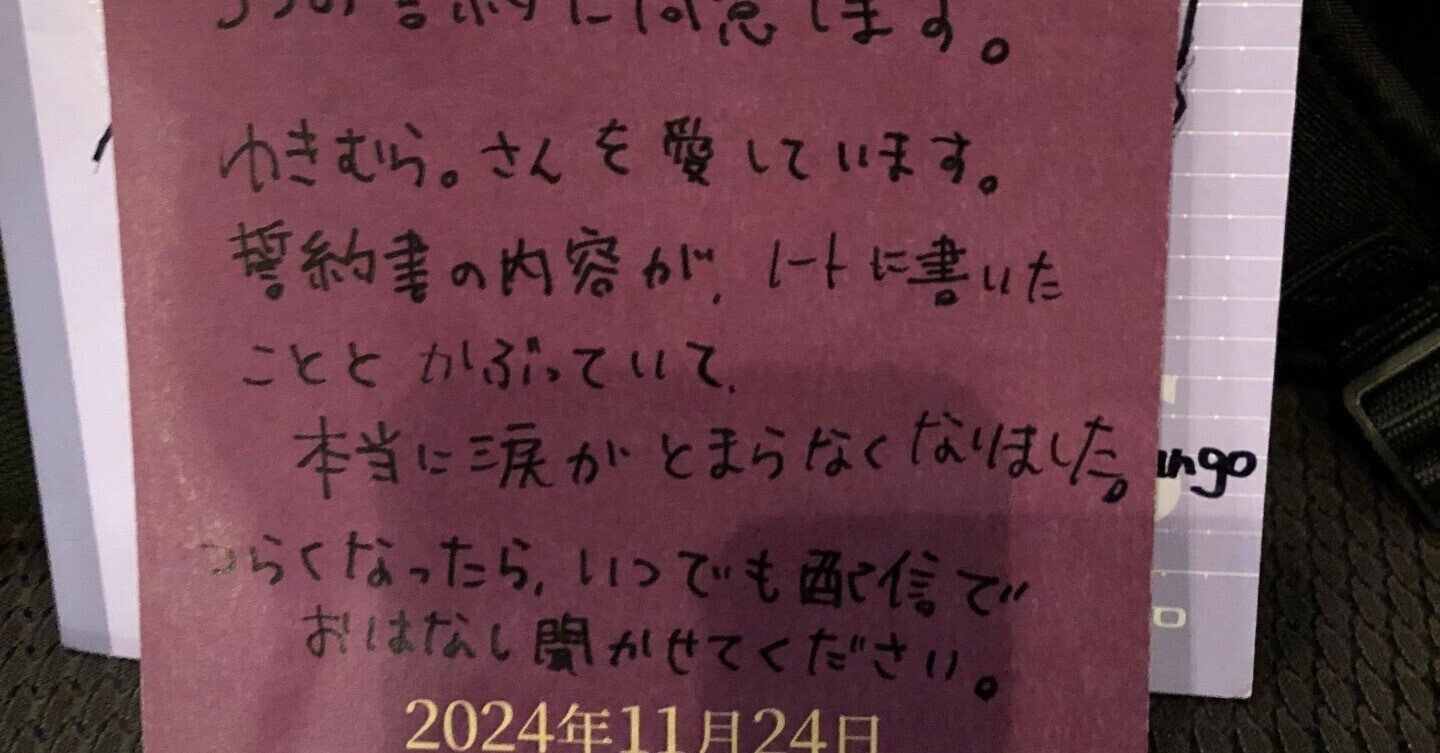 つの誓約に同意します。
ゆきむら。さんを愛しています。
誓約書の内容が、ノートに書いた
ことと かぶっていて、
本当に涙がとまらなくなりました。
つらくなったら、いつでも配信で
おはなし聞かせてください。
2024年11月24日